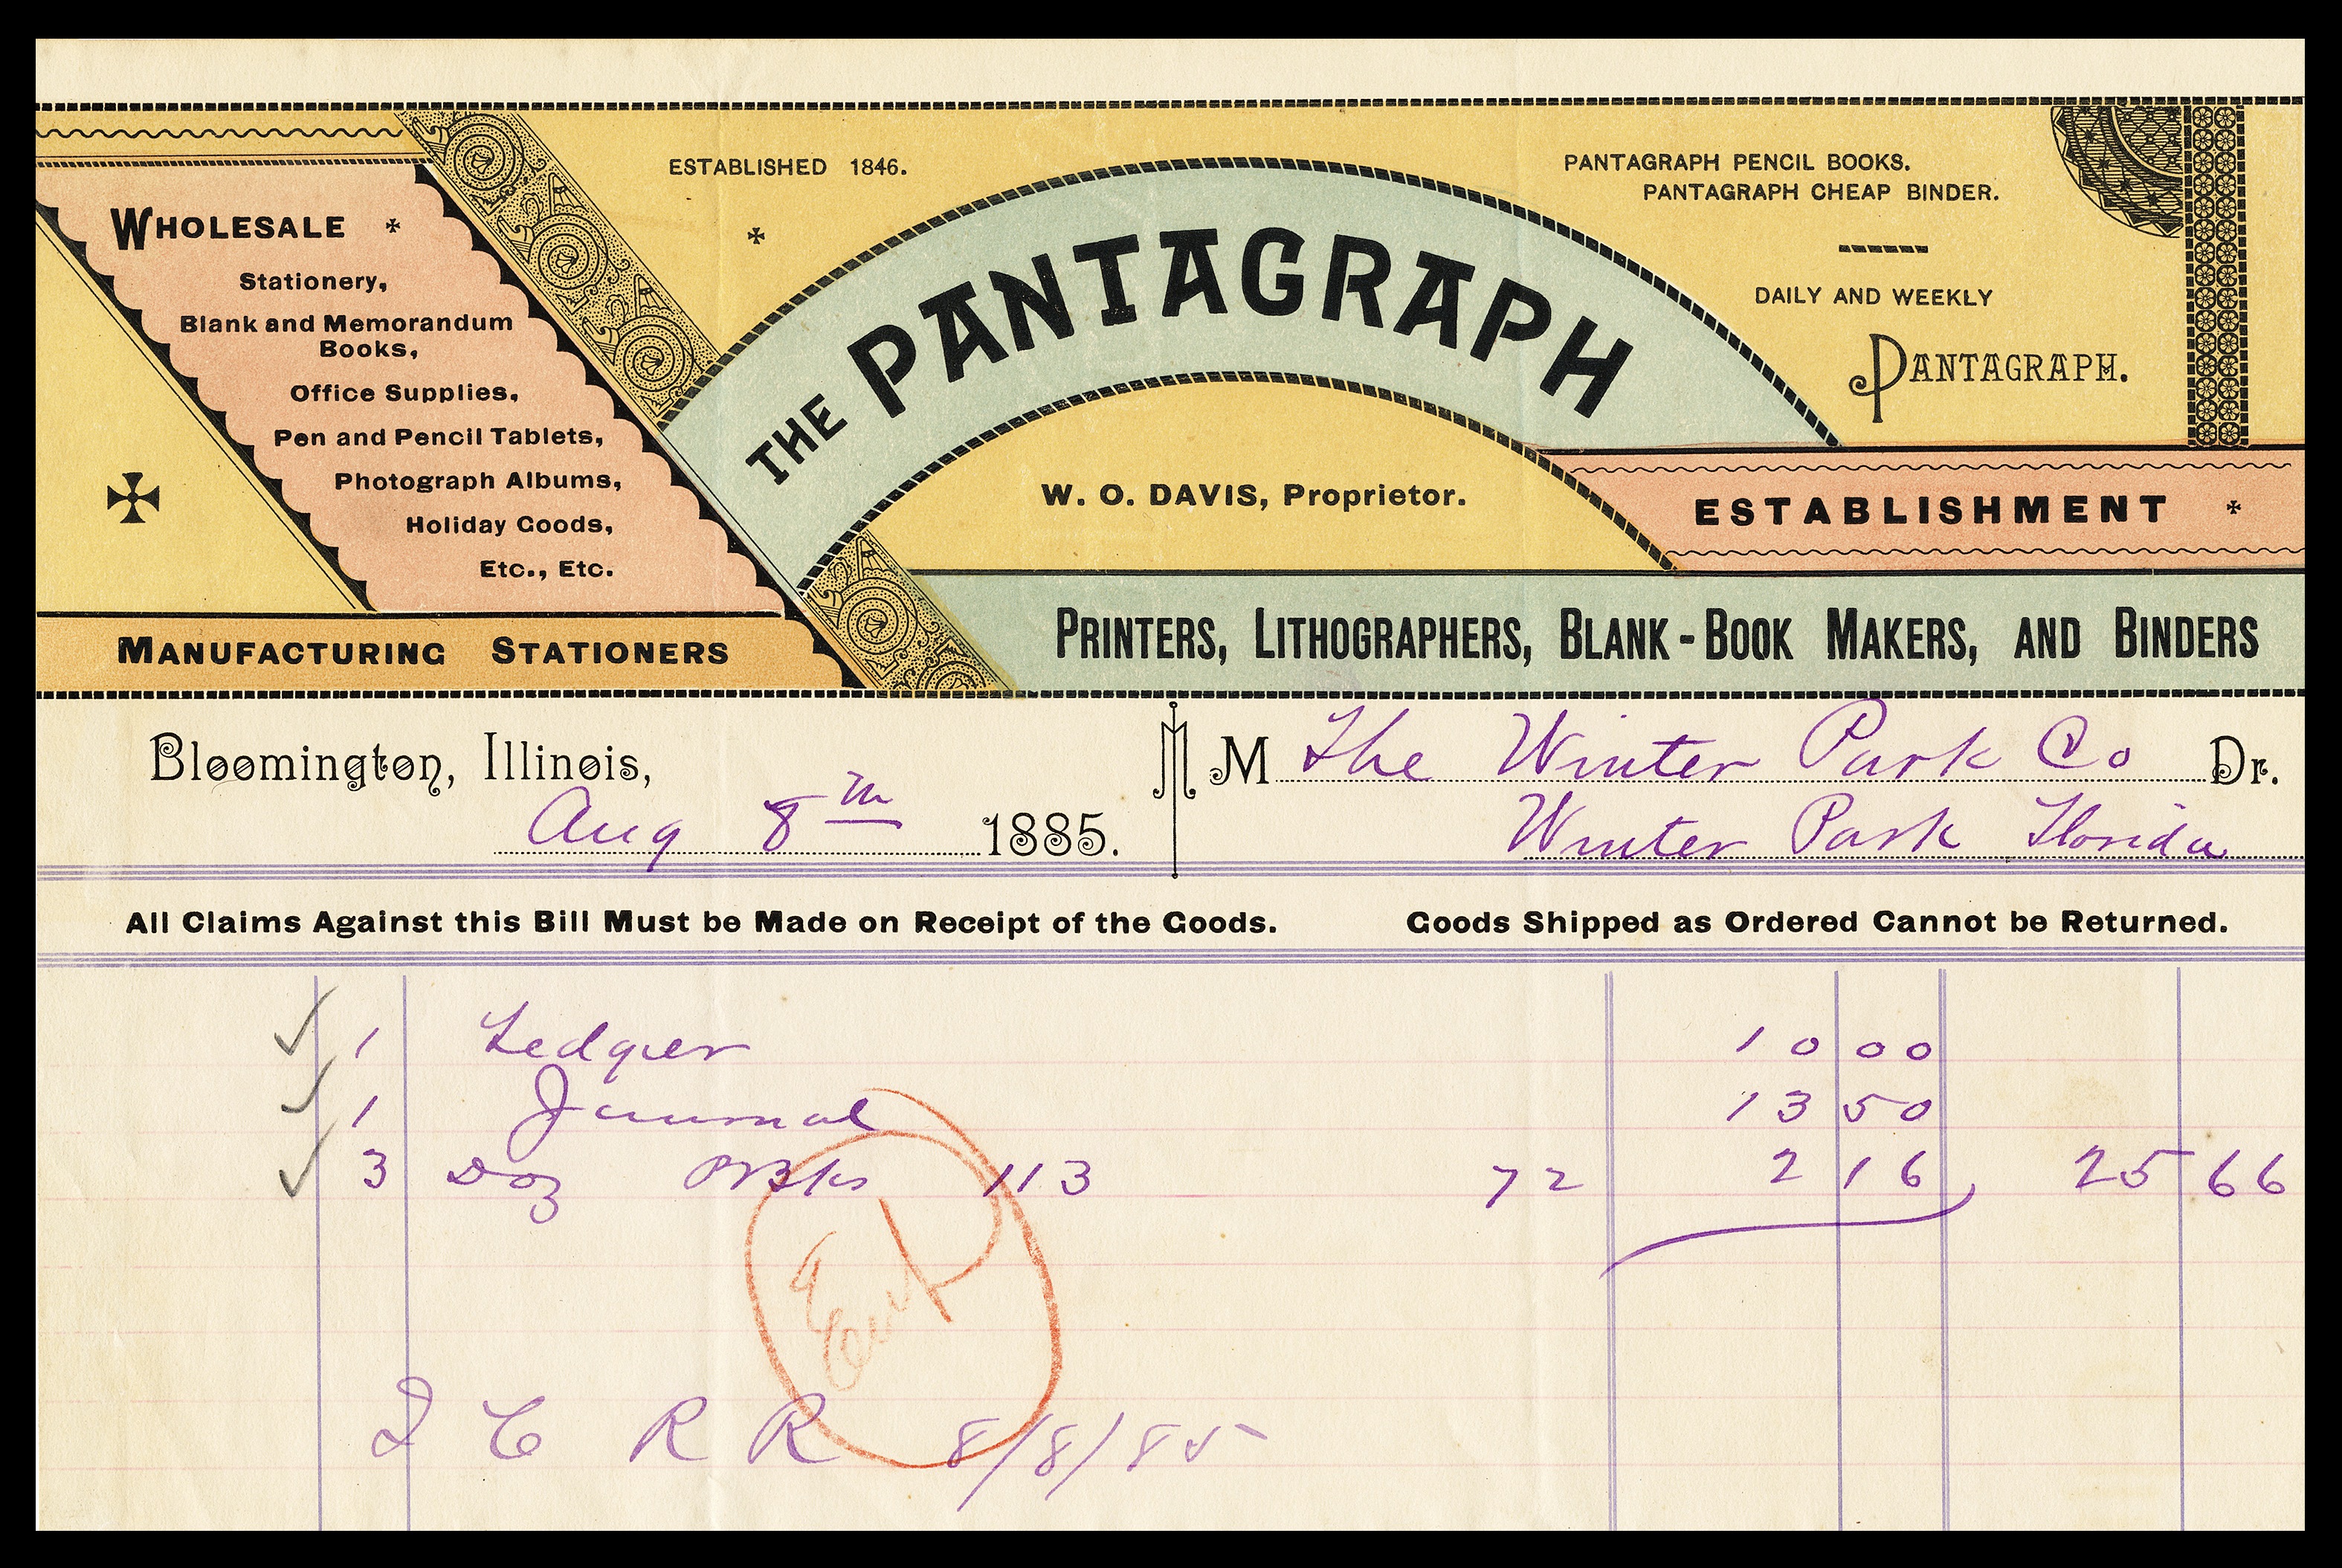 WHOLESALE
Stationery,
Blank and Memorandum
Books,
Office Supplies,
Pen and Pencil Tablets,
Photograph Albums,
Holiday Goods,
Etc., Etc.
MANUFACTURING STATIONERS
ESTABLISHED 1846.
THE PANTAGRAPH
W. O. DAVIS, Proprietor.
PANTAGRAPH PENCIL BOOKS.
PANTAGRAPH CHEAP BINDER.
DAILY AND WEEKLY
PANTAGRAPH.
ESTABLISHMENT
PRINTERS, LITHOGRAPHERS, BLANK-BOOK MAKERS, AND BINDERS
Bloomington, Illinois,
Aug 8th 1885.
M The Winter Park Co Dr.
Winter Park Florida
All Claims Against this Bill Must be Made on Receipt of the Goods. Goods Shipped as Ordered Cannot be Returned.
1 Ledger 10 00
1 Journal 13 50
3 Doz PBks 113 72 2 16 25 66
I C R R 8/8/85